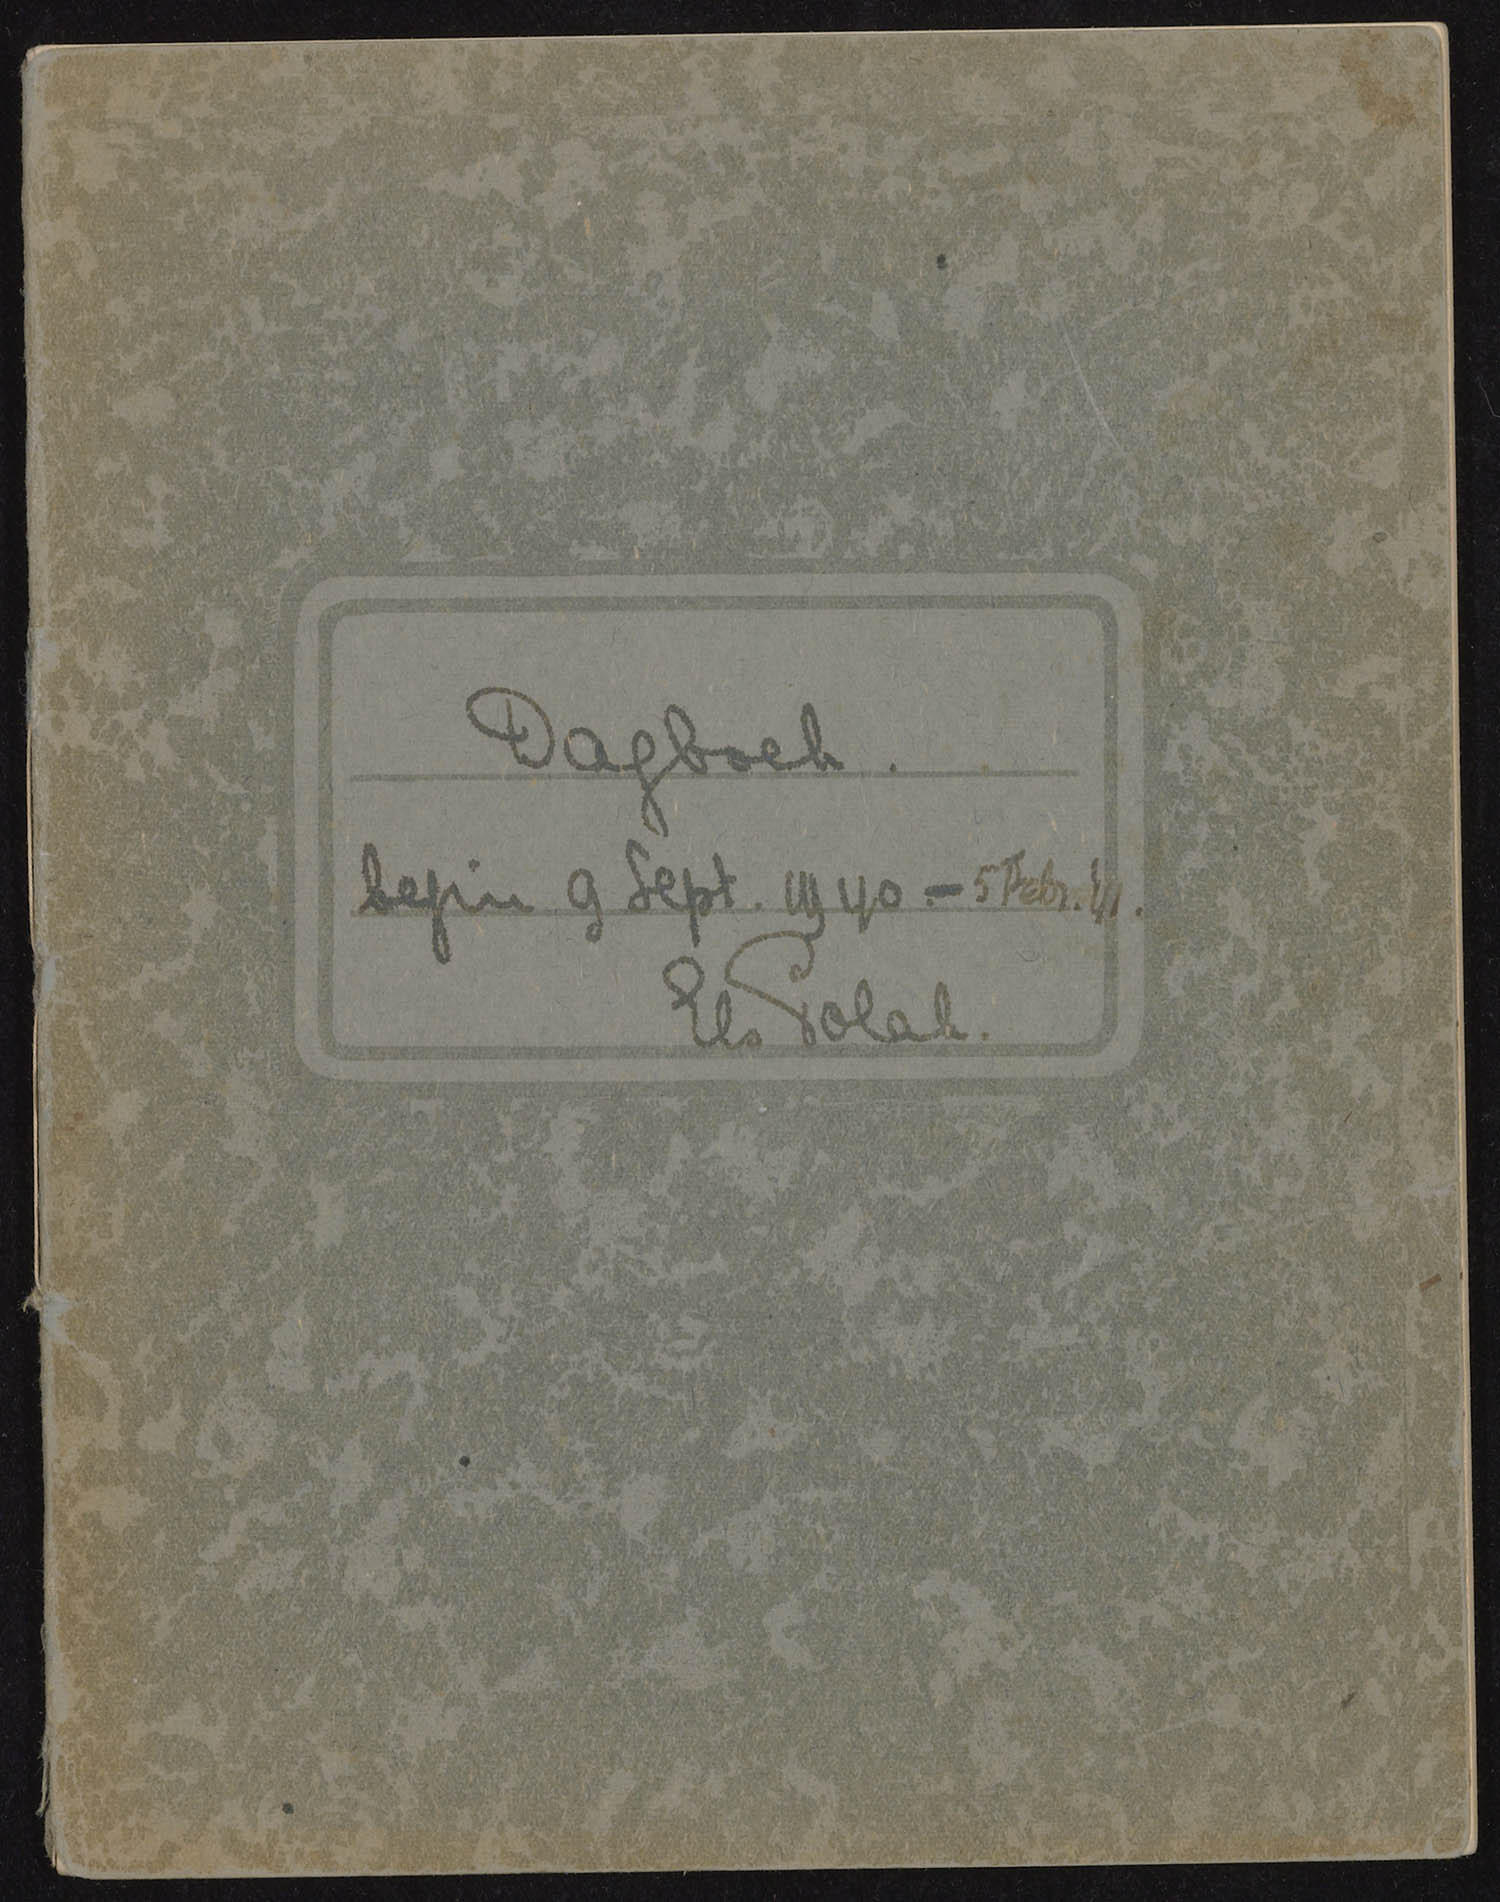 Dagboek.
begin 9 Sept. 1940. - 5 Febr. '41.
Els Polak.